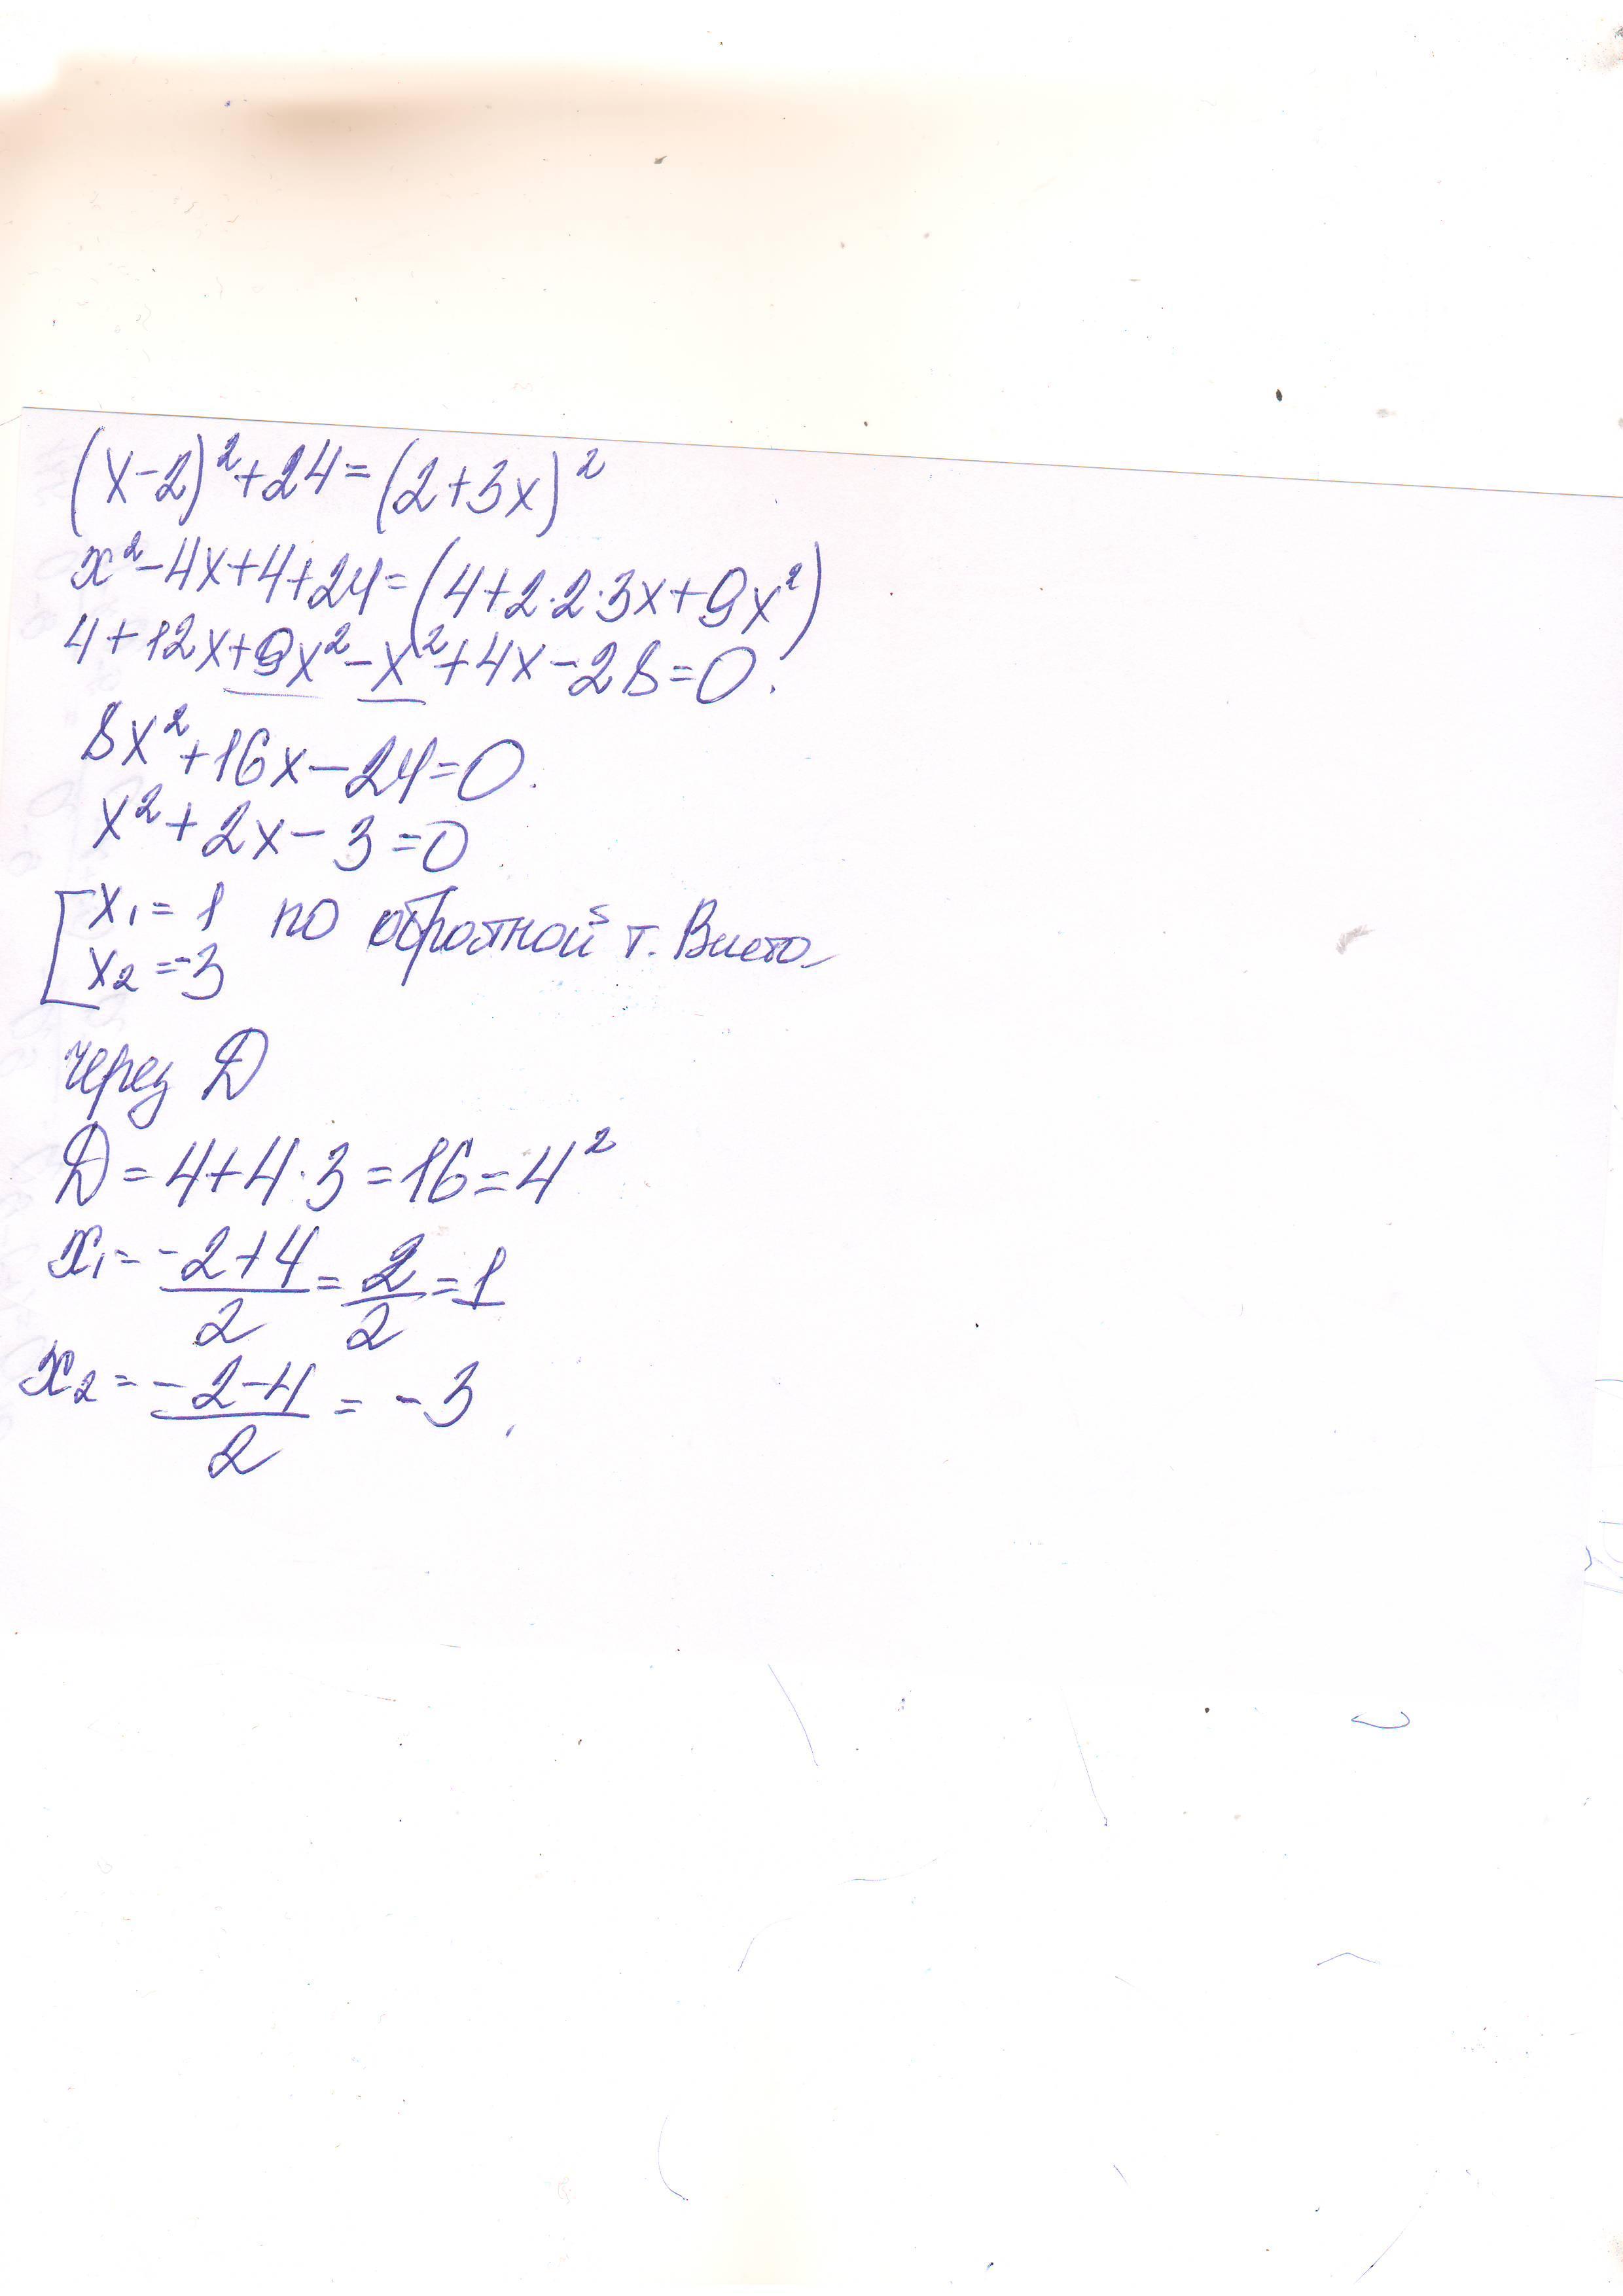 (x-2)²+24=(2+3x)²
x²-4x+4+24=(4+2·2·3x+9x²)
4+12x+9x²-x²+4x-28=0.
8x²+16x-24=0.
x²+2x-3=0
[x₁=1 по обратной т. Виета
x₂=-3
через D
D=4+4·3=16=4²
x₁=(-2+4)/2=2/2=1
x₂=(-2-4)/2=-3.